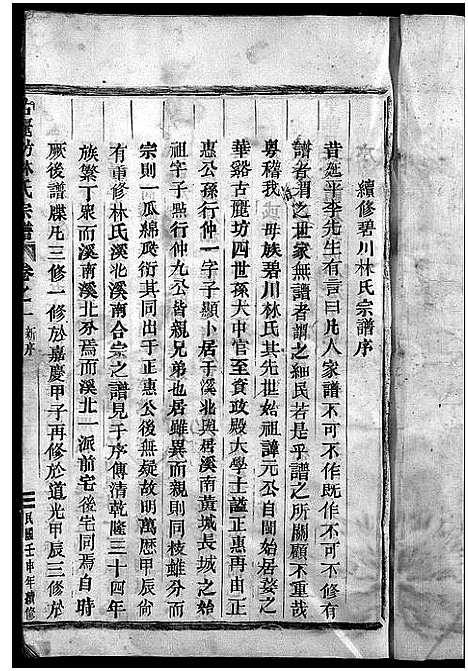 續修碧川林氏宗譜序
昔延平李先生有言曰凡人家譜不可不作既作不可不修有
譜者謂之世家無譜者謂之細民若是乎譜之所關顧不重哉
粵稽我治母族碧川林氏其先世始祖諱元公自閩始居婺之
華谿古麗坊四世孫大中官至資政殿大學士謚正惠再由正
惠公孫行仲一字子顯卜居于溪北與居溪南黃城長城之始
祖字子點行仲九公皆親兄弟也居雖異而親則同枝雖分而
宗則一瓜綿瓞衍其同出于正惠公後無疑故明萬歷甲辰尙
有重修林氏溪北溪南合宗之譜見于序傳清乾隆三十四年
族繁丁衆而溪南溪北分焉而溪北一派前宅後宅同焉自時
厥後譜牒凡三修一修於嘉慶甲子再修於道光甲辰三修於
古麗坊林氏宗譜 卷之一 新序 三 民國壬申年續修